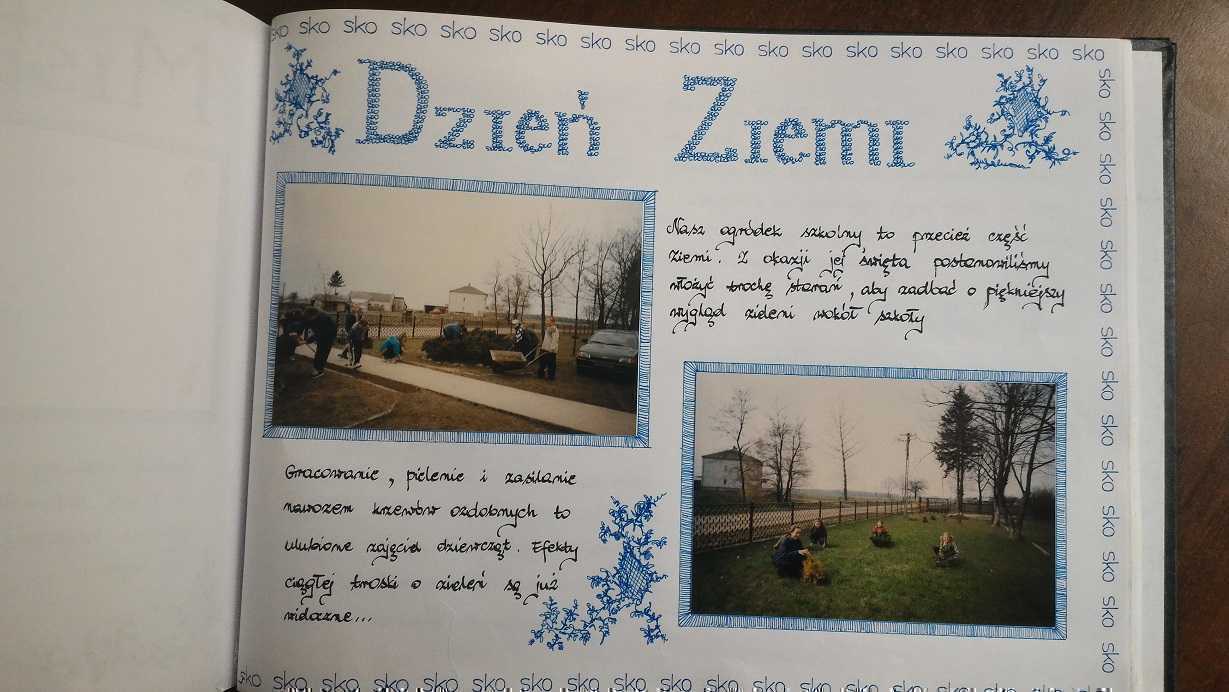 sko sko sko sko sko sko sko sko sko sko sko sko sko sko sko sko sko sko
Dzień Ziemi
Nasz ogródek szkolny to przecież część
Ziemi. Z okazji jej święta postanowiliśmy
włożyć trochę starań, aby zadbać o piękniejszy
wygląd zieleni wokół szkoły
Gracowanie, pielenie i zasilanie
nawozem krzewów ozdobnych to
ulubione zajęcia dziewcząt. Efekty
ciągłej troski o zieleń są już
widoczne...
sko
sko
sko
sko
sko
sko
sko
sko
sko
sko
sko
sko
sko
sko
sko sko sko sko sko sko sko sko sko sko sko sko sko sko sko sko sko sko